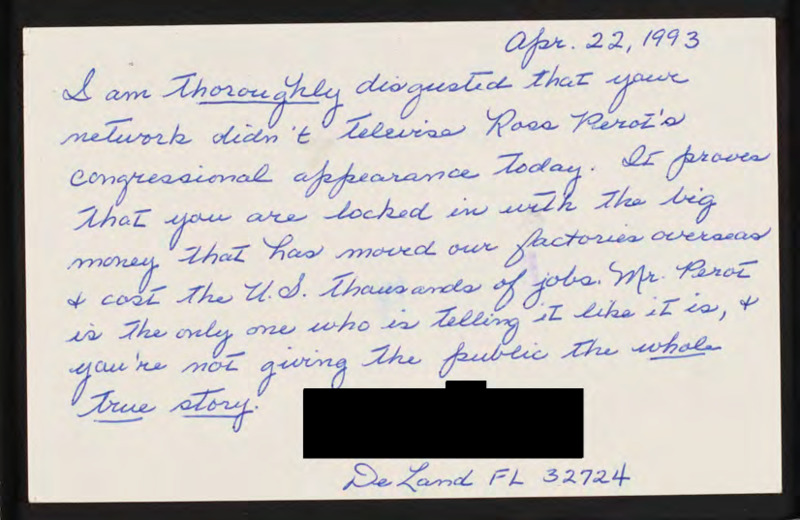 Apr. 22, 1993
I am thoroughly disgusted that your
network didn't televise Ross Perot's
congressional appearance today. It proves
that you are locked in with the big
money that has moved our factories overseas
& cost the U.S. thousands of jobs. Mr. Perot
is the only one who is telling it like it is, &
you're not giving the public the whole
true story.
DeLand FL 32724